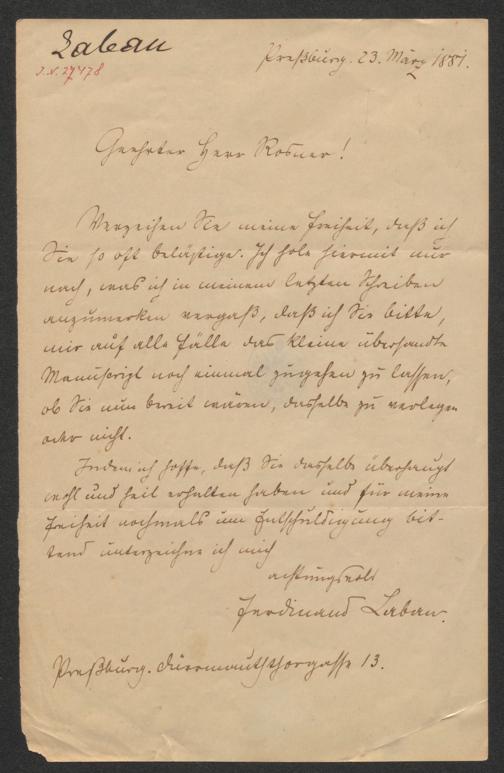 Laban
I.N. 27478
Preßburg. 23. März 1881.
Geehrter Herr Rosner!
Verzeihen Sie meine Freiheit, daß ich
Sie so oft belästige. Ich hole hiermit nur
nach, was ich in meinem letzten Schreiben
anzumerken vergaß, daß ich Sie bitte,
mir auf alle Fälle das kleine übersandte
Manuscript noch einmal zugehen zu lassen,
ob Sie nun bereit wären, dasselbe zu verlegen
oder nicht.
Indem ich hoffe, daß Sie dasselbe überhaupt
wohl und heil erhalten haben und für meine
Freiheit nochmals um Entschuldigung bit-
tend unterzeichne ich mich
achtungsvoll
Ferdinand Laban.
Preßburg. Dürrmauththorgasse 13.